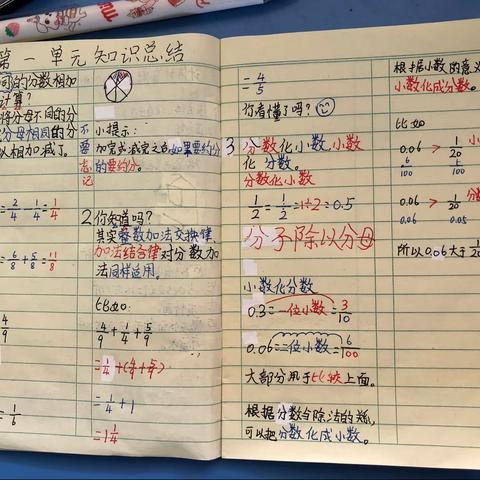 第一单元知识总结
同的分数相加
计算?
将分母不同的分
分母相同的分
以相加减了。
= 2/4 1/4 = 1/4
= 6/8 + 5/8 = 11/8
4/9
= 1/6
小提示:
不要忘记
加完或减完之后如果要约分
的要约。
2.你知道吗?
其实整数加法交换律、
加法结合律对分数加
法同样适用。
比如:
4/9 + 1/4 + 5/9
= 1/4 + (4/9 + 5/9)
= 1/4 + 1
= 1 1/4
= 4/5
你看懂了吗?
3.分数化小数,小数
化分数。
分数化小数
1/2 = 1/2 = 1÷2 = 0.5
分子除以分母
小数化分数
0.3 = 一位小数 = 3/10
0.06 = 二位小数 = 6/100
大部分用于比较上面。
根据分数与除法的关系,
可以把分数化成小数。
根据小数的意义
小数化成分数。
比如
0.06 > 1/20
6/100 5/100
0.06 > 1/20
0.06 0.05
所以0.06大于1/20